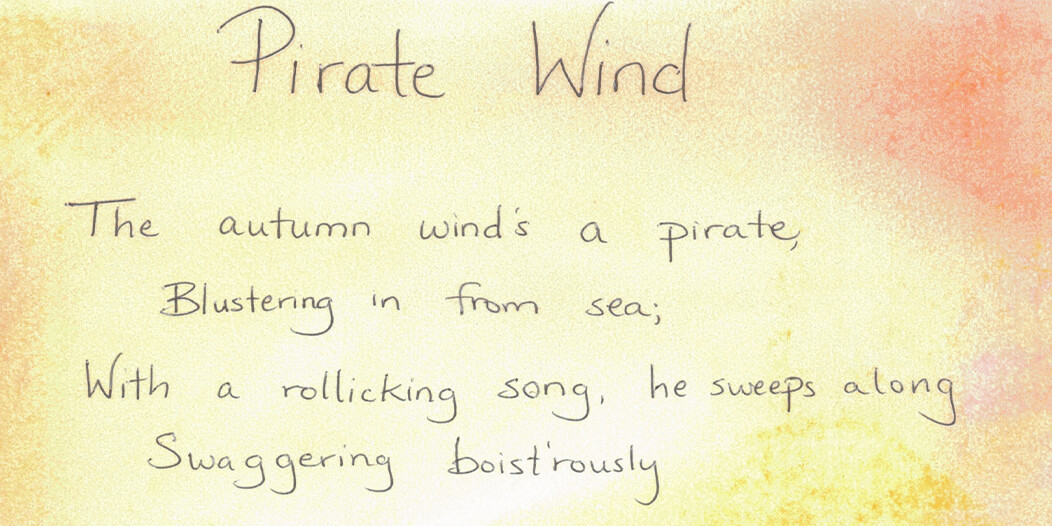 Pirate Wind
The autumn wind's a pirate,
Blustering in from sea;
With a rollicking song, he sweeps along
Swaggering boist'rously